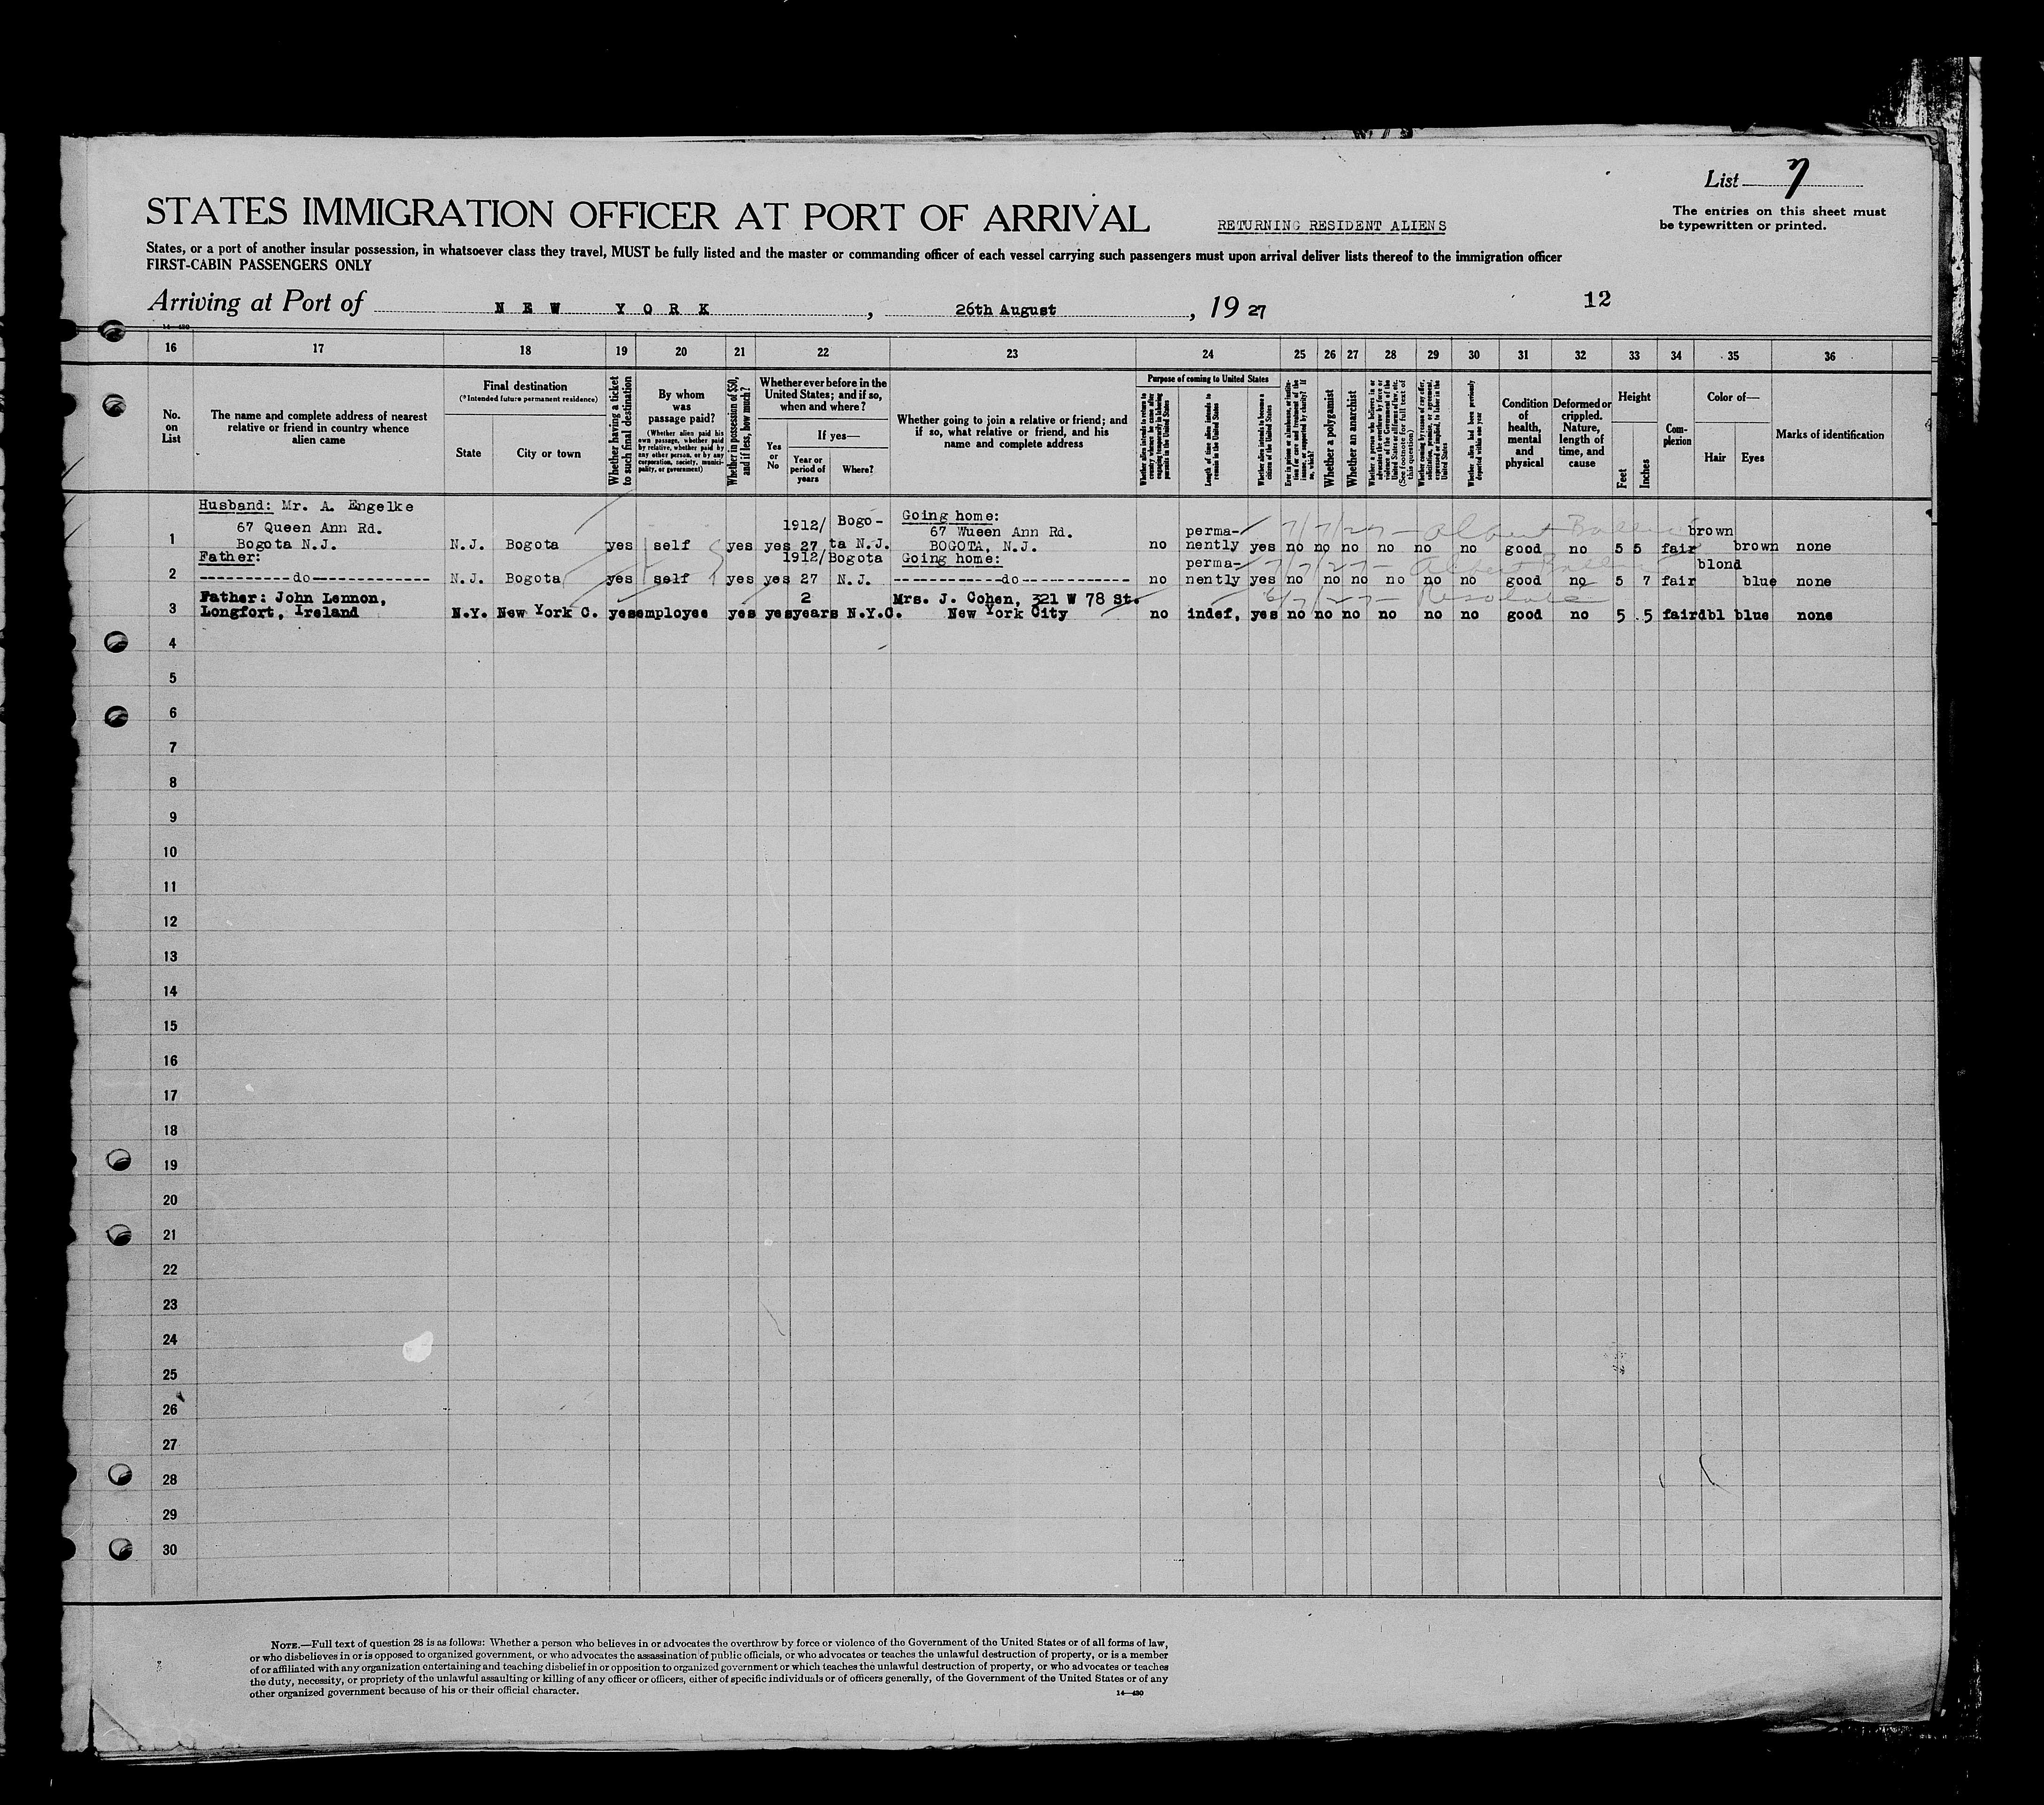 List 7
The entries on this sheet must
be typewritten or printed.
STATES IMMIGRATION OFFICER AT PORT OF ARRIVAL
RETURNING RESIDENT ALIENS
States, or a port of another insular possession, in whatsoever class they travel, MUST be fully listed and the master or commanding officer of each vessel carrying such passengers must upon arrival deliver lists thereof to the immigration officer
FIRST-CABIN PASSENGERS ONLY
Arriving at Port of NEW YORK, 26th August, 1927
12
14—430
16 17 18 19 20 21 22 23 24 25 26 27 28 29 30 31 32 33 34 35 36
No.
on
List
The name and complete address of nearest
relative or friend in country whence
alien came
Final destination
(*Intended future permanent residence)
State
City or town
Whether having a ticket
to such final destination
By whom
was
passage paid?
(Whether alien paid his
own passage, whether paid
by relative, whether paid by
any other person, or by any
corporation, society, munici-
pality, or government)
Whether in possession of $50,
and if less, how much?
Whether ever before in the
United States; and if so,
when and where?
Yes
or
No
If yes—
Year or
period of
years
Where?
Whether going to join a relative or friend; and
if so, what relative or friend, and his
name and complete address
Purpose of coming to United States
Whether alien intends to return to
country whence he came after
engaging temporarily in laboring
pursuits in the United States
Length of time alien intends to
remain in the United States
Whether alien intends to become a
citizen of the United States
Ever in prison or almshouse, or institu-
tion for care and treatment of the
insane, or supported by charity? If
so, which?
Whether a polygamist
Whether an anarchist
Whether a person who believes in or
advocates the overthrow by force or
violence of the Government of the
United States or all forms of law, etc.
(See footnote for full text of
this question)
Whether coming by reason of any offer,
solicitation, promise, or agreement,
expressed or implied, to labor in the
United States
Whether alien had been previously
deported within one year
Condition
of
health,
mental
and
physical
Deformed or
crippled.
Nature,
length of
time, and
cause
Height
Feet
Inches
Com-
plexion
Color of—
Hair
Eyes
Marks of identification
Husband: Mr. A. Engelke
67 Queen Ann Rd. 1912/ Bogo- Going home: 67 Wueen Ann Rd. perma- 7/7/27 — Albert Ballin brown
1 Bogota N.J. N.J. Bogota yes self yes yes 27 ta N.J. BOGOTA, N.J. no nently yes no no no no no no good no 5 5 fair brown none
Father: 1912/ Bogota Going home: perma- 7/7/27 — Albert Ballin blond
2 ----------do------------- N.J. Bogota yes self yes yes 27 N.J. ------------do------------- no nently yes no no no no no no good no 5 7 fair blue none
Father: John Lennon, 2 Mrs. J. Cohen, 321 W 78 St. 6/7/27 — Resolute
3 Longfort, Ireland N.Y. New York C. yes employee yes yes years N.Y.C. New York City no indef, yes no no no no no no good no 5 5 fair dbl blue none
4
5
6
7
8
9
10
11
12
13
14
15
16
17
18
19
20
21
22
23
24
25
26
27
28
29
30
NOTE.—Full text of question 28 is as follows: Whether a person who believes in or advocates the overthrow by force or violence of the Government of the United States or of all forms of law,
or who disbelieves in or is opposed to organized government, or who advocates the assassination of public officials, or who advocates or teaches the unlawful destruction of property, or is a member
of or affiliated with any organization entertaining and teaching disbelief in or opposition to organized government or which teaches the unlawful destruction of property, or who advocates or teaches
the duty, necessity, or propriety of the unlawful assaulting or killing of any officer or officers, either of specific individuals or of officers generally, of the Government of the United States or of any
other organized government because of his or their official character.
14—430